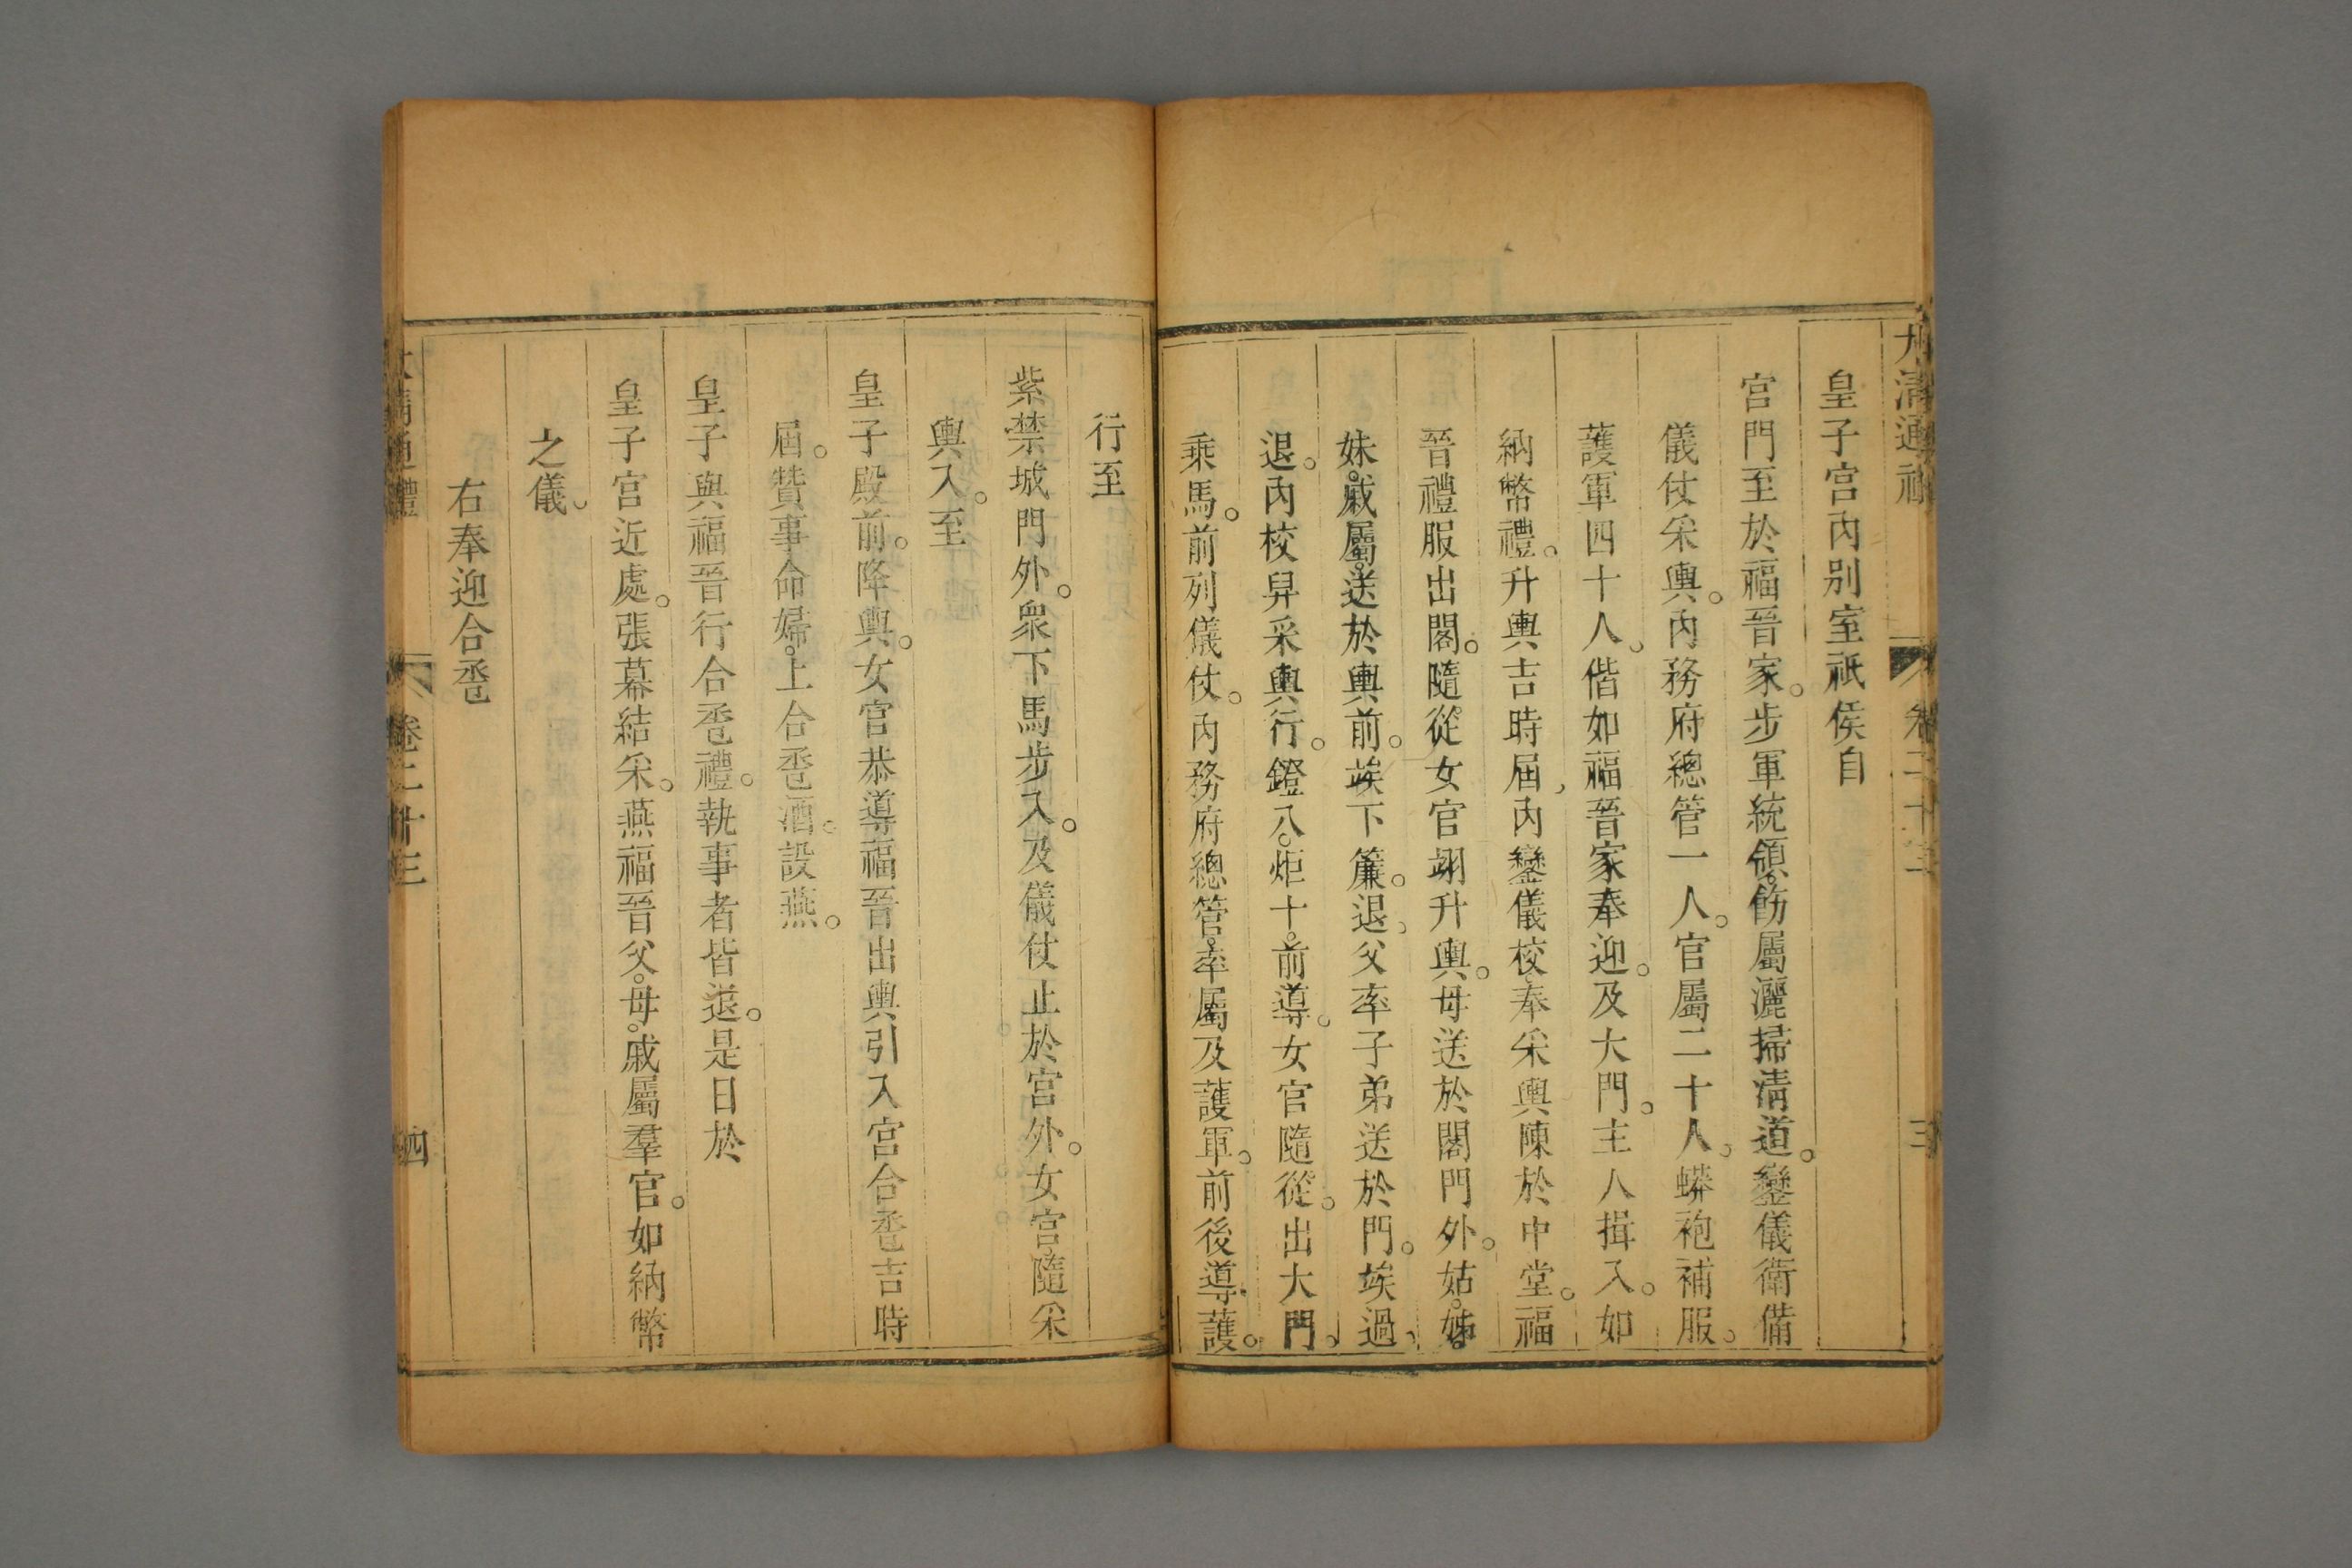 大清通禮 卷二十三 三
皇子宮內別室祇俟自
宮門至於福晉家。步軍統領。飭屬灑掃清道。鑾儀衛備
儀仗采輿。內務府總管一人。官屬二十人。蟒袍補服。
護軍四十人。偕如福晉家奉迎。及大門。主人揖入。如
納幣禮。升輿吉時屆。內鑾儀校奉采輿陳於中堂。福
晉禮服出閣。隨從女官翊升輿。母送於閤門外。姑。姊。
妹。戚屬。送於輿前。竢下簾。退。父率子弟送於門。竢過。
退。內校舁采輿行。鐙八。炬十。前導。女官隨從。出大門。
乘馬。前列儀仗。內務府總管。率屬及護軍。前後導護。
行至
紫禁城門外。衆下馬步入。及儀仗止於宮外。女官隨采
輿入。至
皇子殿前。降輿。女官恭導福晉出輿引入宮合巹吉時
屆。贊事命婦。上合巹酒。設燕。
皇子與福晉行合巹禮。執事者皆退。是日於
皇子宮近處。張幕結采。燕福晉父。母。戚屬羣官。如納幣
之儀。
右奉迎合巹
大清通禮 卷二十三 四